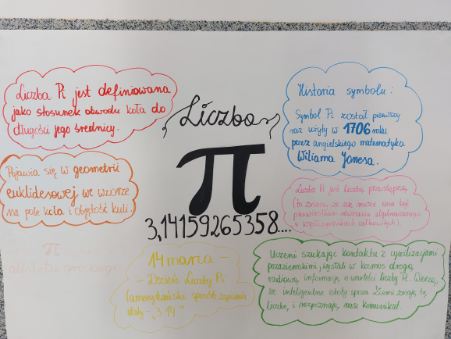 Liczba Pi jest definiowana
jako stosunek obwodu koła do
długości jego średnicy.
Liczba
π
3,14159265358....
Historia symbolu:
Symbol Pi został pierwszy
raz użyty w 1706 roku
przez angielskiego matematyka
Wiliama Jonesa.
Pojawia się w geometrii
euklidesowej we wzorze
na pole koła i objętość kuli.
Liczba π jest liczbą przestępną
π
14 marca -
- Dzień Liczby Pi
(amerykański sposób zapisania
daty - „3.14”
Uczeni szukając kontaktu z cywilizacjami
pozaziemskimi, wysłali w kosmos drogą
radiową informację o wartości liczby π. Wierzą,
że inteligentne istoty spoza Ziemi znają tę
liczbę, i rozpoznają nasz komunikat.